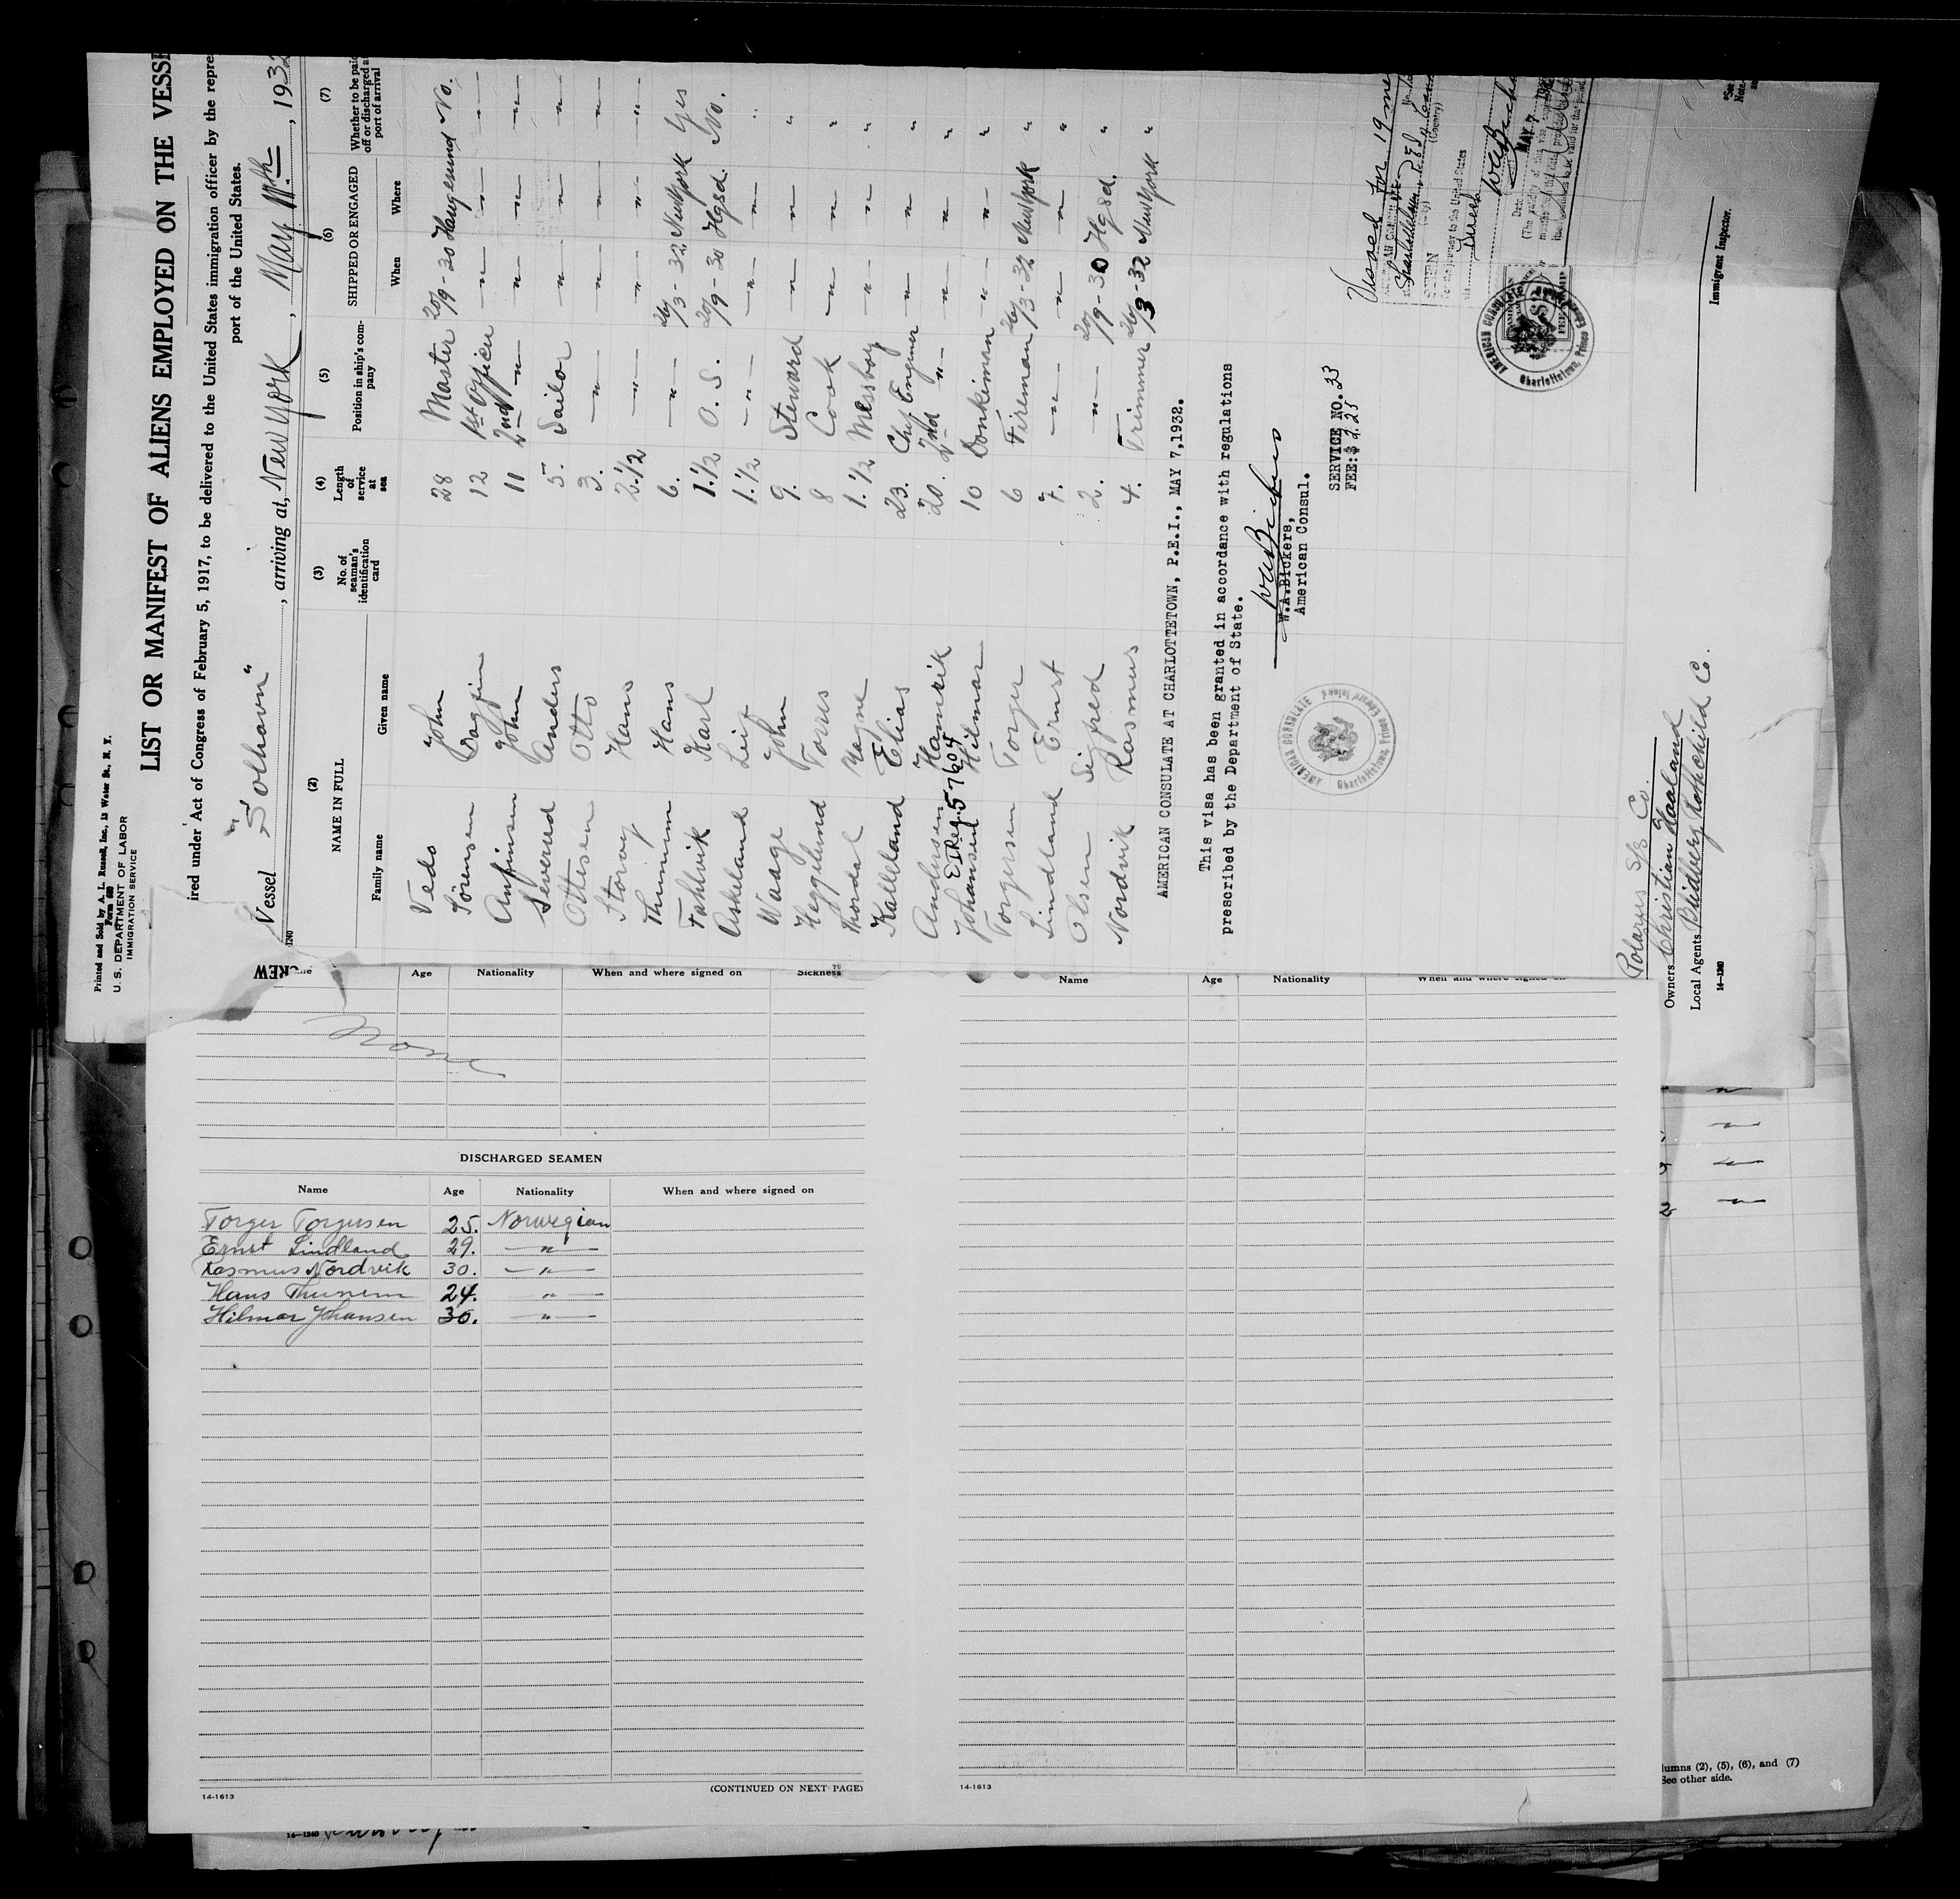 Printed and Sold by A. L. Russell, Inc., 13 Water St., N. Y.
Form 680
U. S. DEPARTMENT OF LABOR
IMMIGRATION SERVICE
LIST OR MANIFEST OF ALIENS EMPLOYED ON THE VESSE
ired under Act of Congress of February 5, 1917, to be delivered to the United States immigration officer by the repre
port of the United States.
Vessel "Solhavn" , arriving at, New York , May 11th , 1932
1240
(2) (3) (4) (5) (6) (7)
NAME IN FULL No. of seaman's identification card Length of service at sea Position in ship's company SHIPPED OR ENGAGED Whether to be paid off or discharged at port of arrival
Family name Given name When Where
Vedo John 28 Master 20/9-30 Haugesund No.
Sørensen Dagfin 12 1st Officer " " "
Anfinsen John 11 2nd " " " "
Severud Anders 5. Sailor " " "
Ottesen Otto 3. " " " "
Storøy Hans 2.1/2 " " " "
Thunem Hans 6. " 26/3-32 New York Yes
Fahlvik Karl 1.1/2 O. S. 20/9-30 Hgsd. No.
Askeland Leif 1.1/2 " " " "
Waage John 9. Steward " " "
Heggelund Torres 8 Cook " " "
Thordal Magne 1.1/2 Messboy " " "
Kalleland Elias 23. Chf Engineer " " "
Andersen Hanrik 20. 2nd " " " "
Johansen Hilmar 10 Donkeyman " " "
Torgersen Torger 6 Fireman 26/3-32 New York "
Lindland Ernst 7. " " " "
Olsen Sigfred 2. " 20/9-30 Hgsd. "
Nordvik Rasmus 4. Trimmer 26/3-32 New York "
AMERICAN CONSULATE AT CHARLOTTETOWN, P.E.I., MAY 7,1932.
This visa has been granted in accordance with regulations
prescribed by the Department of State.
W.A.Bickers,
American Consul.
SERVICE NO. 33
FEE:$ 2.25
AMERICAN CONSULATE
Charlottetown, Prince Edward Island
19
(Country)
For the journey to the United States
via Direct
Date MAY 7
AMERICAN CONSULATE
Charlottetown, Prince Edward Island
Polarus S/S Co.
Owners Christian Haaland
Local Agents
14—1240
Immigrant Inspector.
CREW
Age Nationality When and where signed on Sickness
None
DISCHARGED SEAMEN
Name Age Nationality When and where signed on
Torger Torgersen 25. Norwegian
Ernst Lindland 29. "
Rasmus Nordvik 30. "
Hans Thunem 24. "
Hilmar Johansen 30. "
(CONTINUED ON NEXT PAGE)
14-1613
Name Age Nationality When and where signed on
14-1613
lumns (2), (5), (6), and (7)
See other side.
14—1240